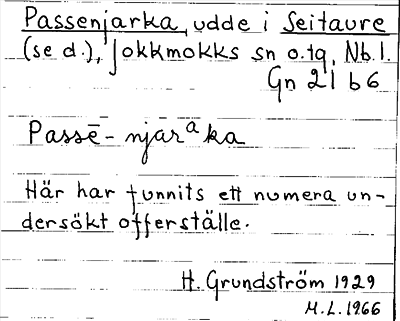 Passenjarka, udde i Seitaure
(se d.), Jokkmokks sn o. tg, Nb. l.
Gn 21 b 6
Passē- njarᵃka
Här har funnits ett numera un-
dersökt offerställe.
H. Grundström 1929
M. L. 1966